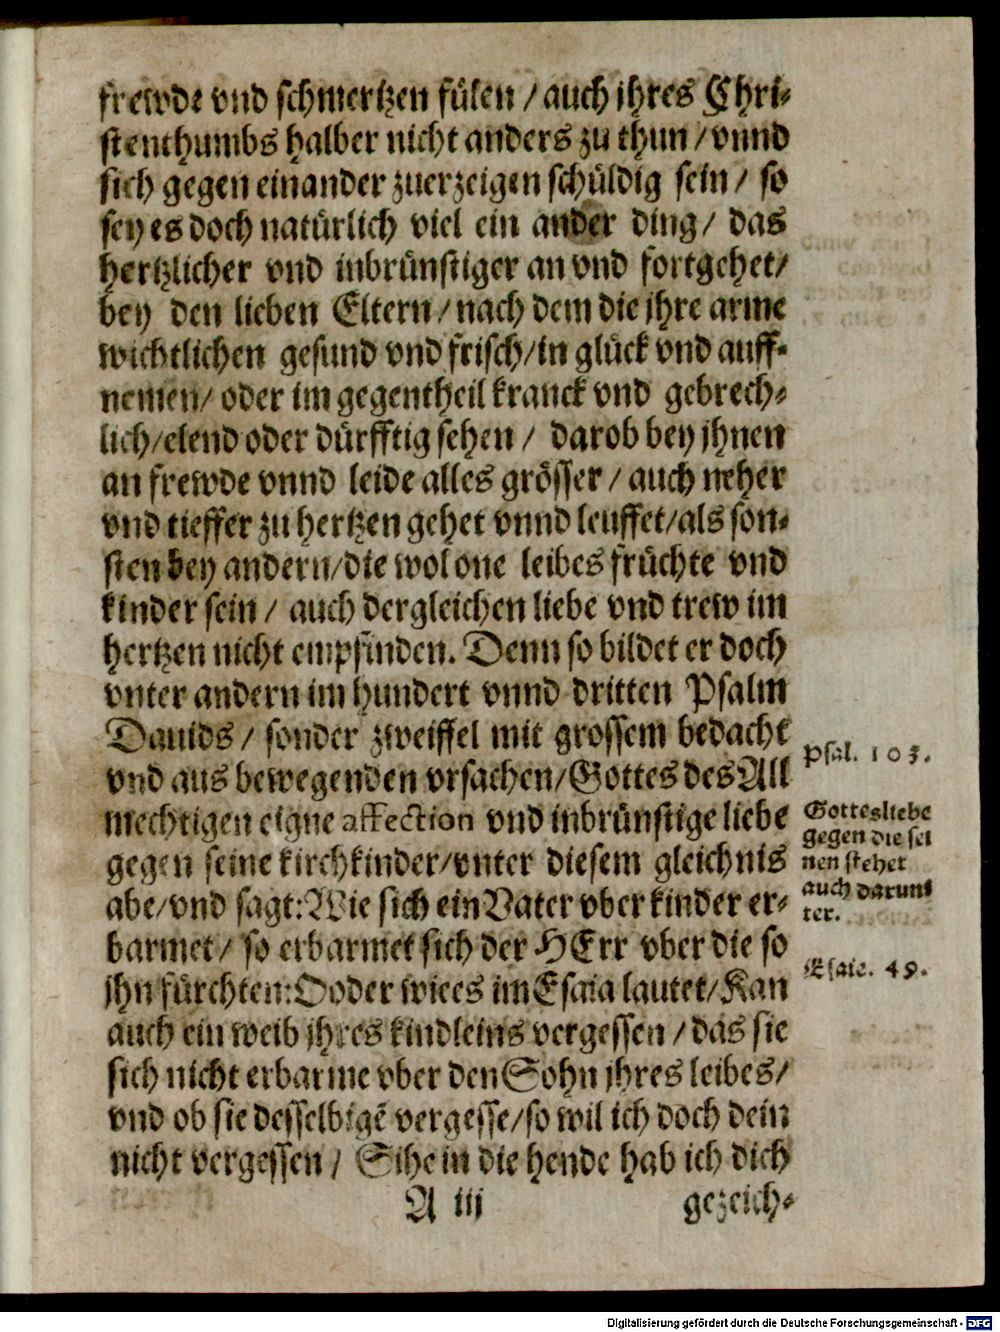 frewde vnd schmertzen fülen / auch jhres Chri-
stenthumbs halber nicht anders zu thun / vnnd
sich gegen einander zuerzeigen schüldig sein / so
sey es doch natürlich viel ein ander ding / das
hertzlicher vnd inbrünstiger an vnd fortgehet /
bey den lieben Eltern / nach dem die jhre arme
wichtlichen gesund vnd frisch / in glück vnd auff-
nemen / oder im gegentheil kranck vnd gebrech-
lich / elend oder dürfftig sehen / darob bey jhnen
an frewde vnnd leide alles grösser / auch neher
vnd tieffer zu hertzen gehet vnnd leuffet / als son-
sten bey andern / die wol one leibes früchte vnd
kinder sein / auch dergleichen liebe vnd trew im
hertzen nicht empfinden. Denn so bildet er doch
vnter andern im hundert vnnd dritten Psalm
Dauids / sonder zweiffel mit grossem bedacht
vnd aus bewegenden vrsachen / Gottes des All
mechtigen eigne affection vnd inbrünstige liebe
gegen seine kirchkinder / vnter diesem gleichnis
abe / vnd sagt: Wie sich ein Vater vber kinder er-
barmet / so erbarmet sich der HErr vber die so
jhn fürchten: Ooder wie es im Esaia lautet / Kan
auch ein weib jhres kindleins vergessen / das sie
sich nicht erbarme vber den Sohn jhres leibes /
vnd ob sie desselbigẽ vergesse / so wil ich doch dein
nicht vergessen / Sihe in die hende hab ich dich
A iij gezeich-
Psal. 103.
Gottesliebe
gegen die sei
nen stehet
auch darun-
ter.
Esaie. 49.
Digitalisierung gefördert durch die Deutsche Forschungsgemeinschaft - DFG